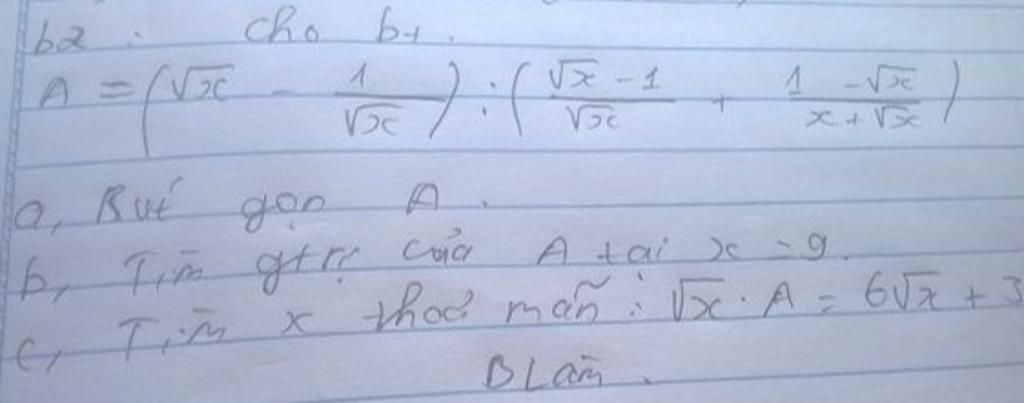 b2 : Cho b+.
A = (√x - 1/√x) : (√x - 1/√x + 1 - √x/x + √x)
a, Rút gọn A.
b, Tìm gtrị của A tại x = 9.
c, Tìm x thoả mãn : √x . A = 6√x + 3
BLàm.